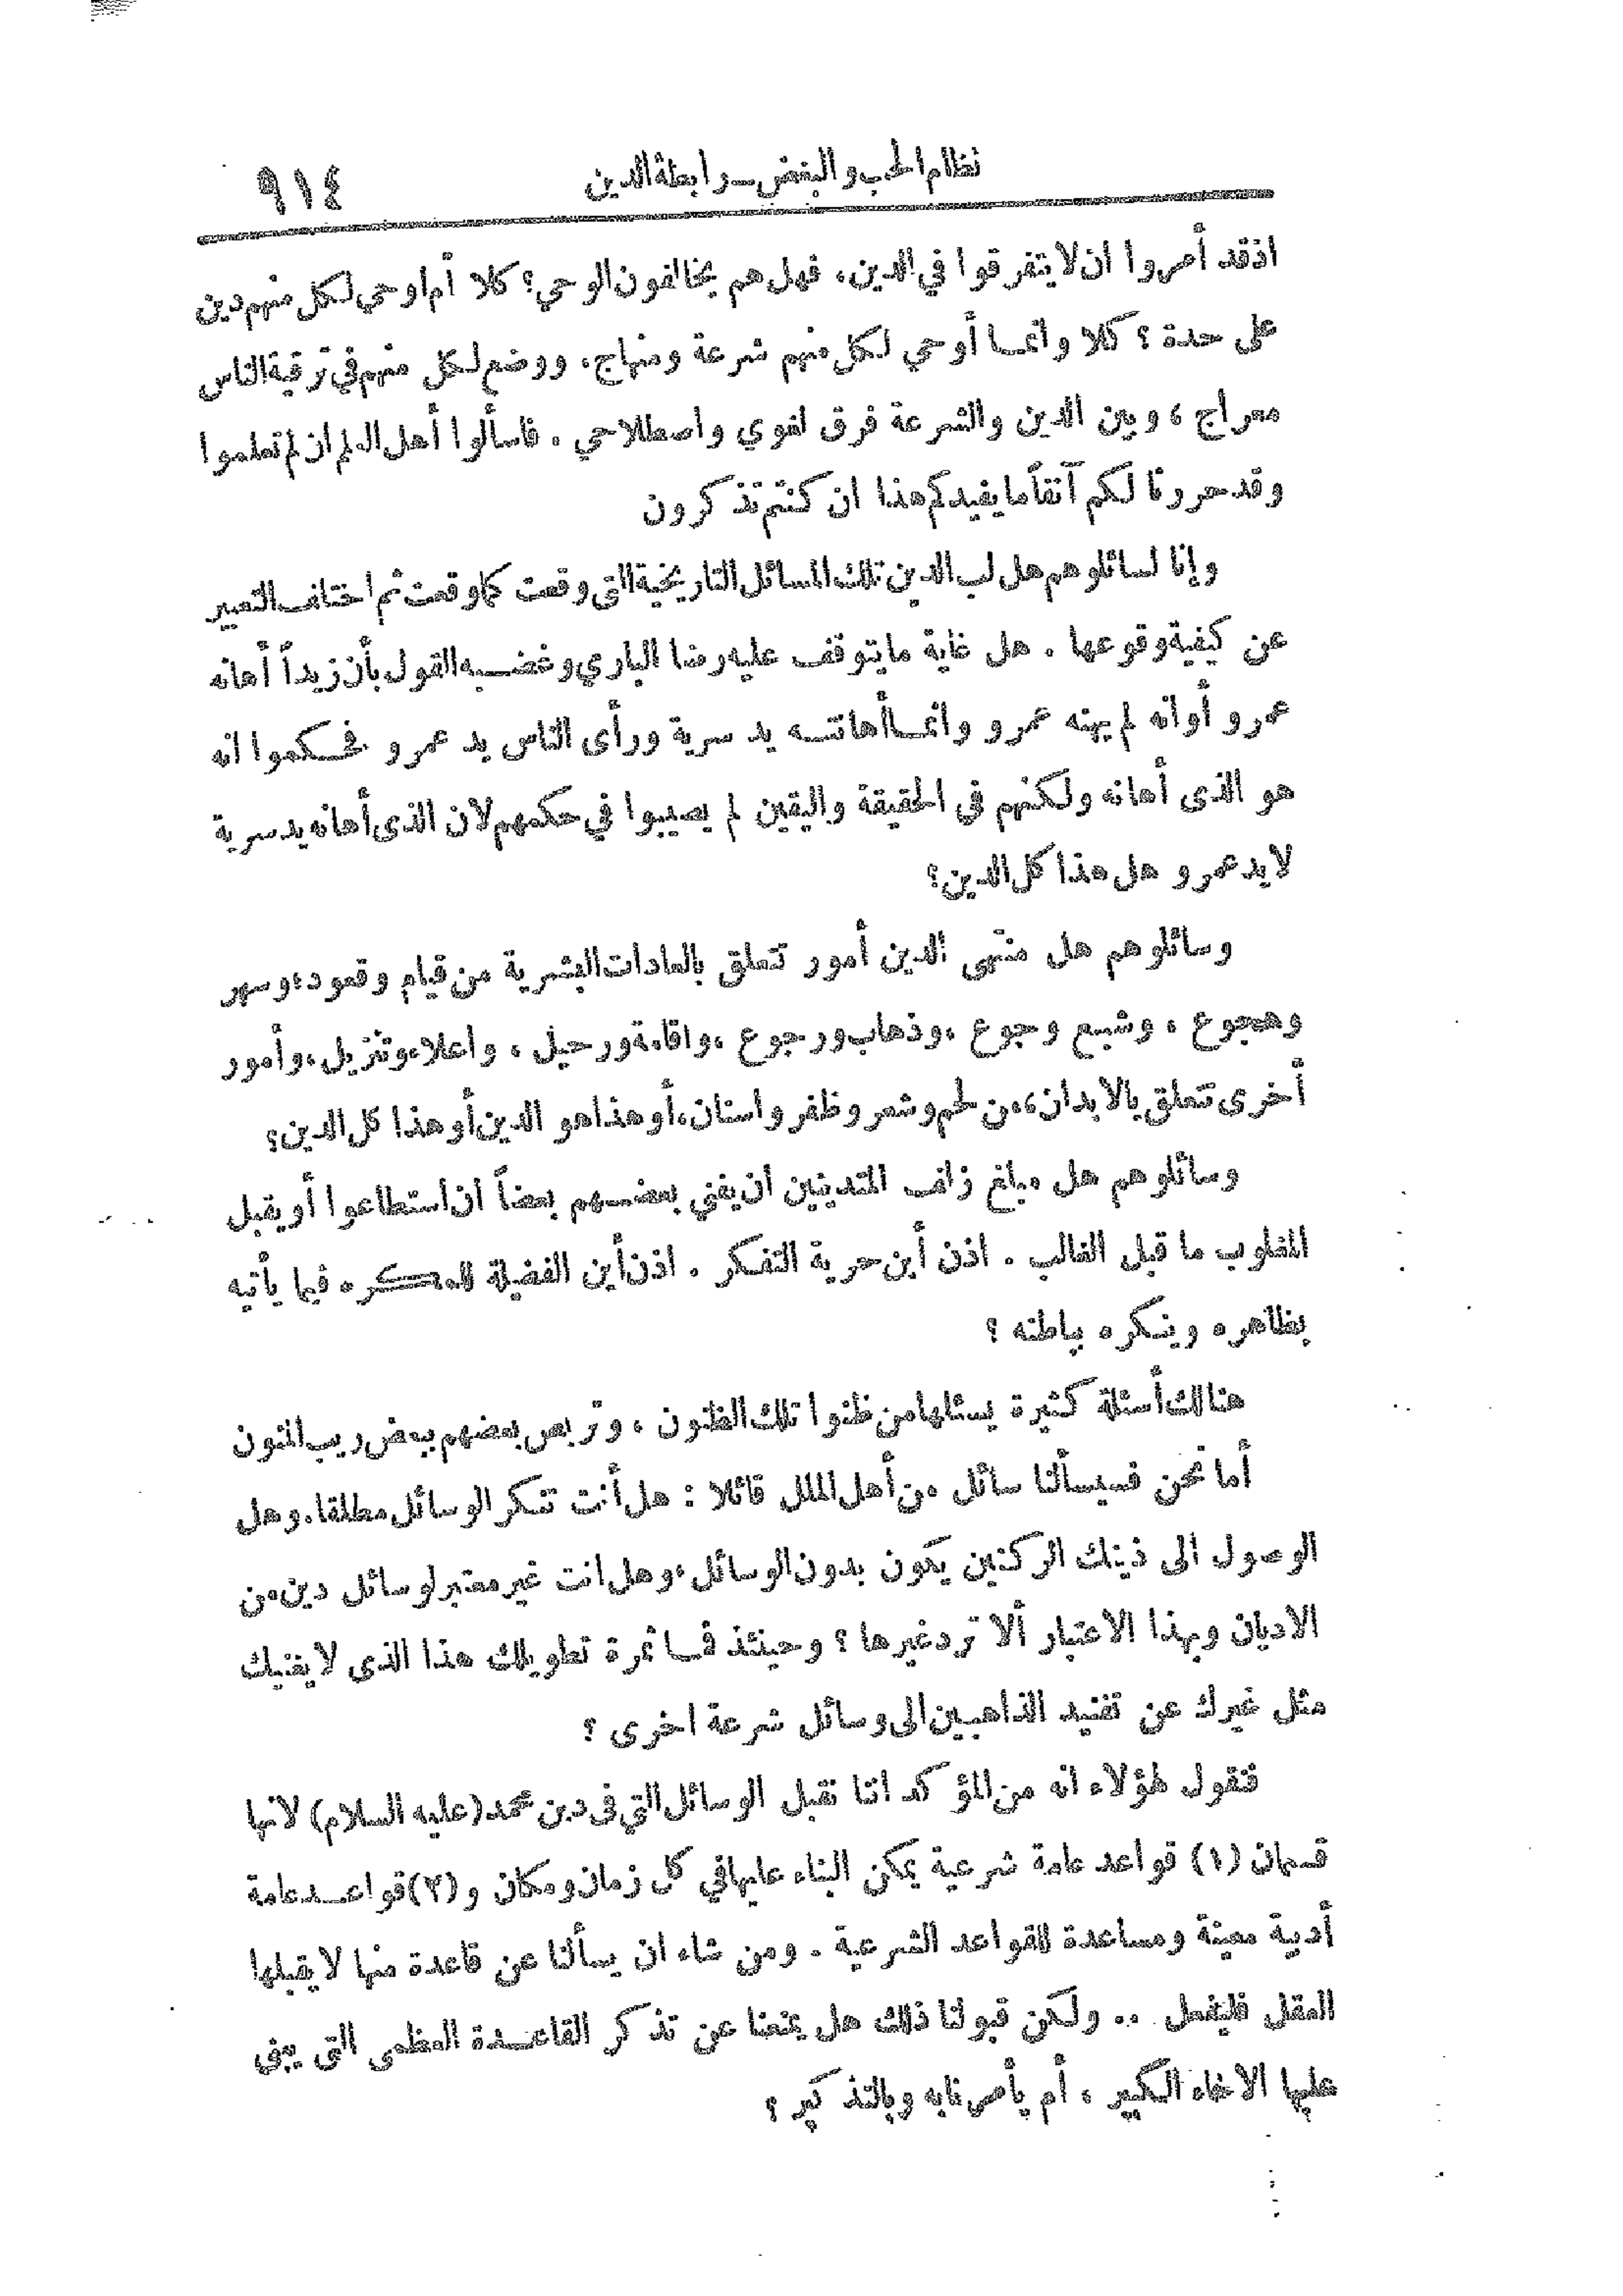 نظام الحب والبغض ــ رابطة الدين ٩١٤
اذ قد أمروا ان لا يتفرقوا في الدين، فهل هم يخالفون الوحي؟ كلا أم اوحي لكل منهم دين
على حدة؟ كلا وانما أوحي لكل منهم شرعة ومنهاج، ووضع لكل منهم في ترقية الناس
معراج، وبين الدين والشرعة فرق لغوي واصطلاحي . فاسألوا أهل العلم ان لم تعلموا
وقد حررنا لكم آنفاً ما يفيدكم هذا ان كنتم تذكرون
وإنا لسائلوهم هل لب الدين تلك المسائل التاريخية التى وقعت كما وقعت ثم اختلف التعبير
عن كيفية وقوعها . هل غاية ما يتوقف عليه رضا الباري وغضبه القول بأن زيداً أهانه
عمرو أو انه لم يهنه عمرو وانما أهانته يد سرية ورأى الناس يد عمرو فحكموا انه
هو الذى أهانه ولكنهم فى الحقيقة واليقين لم يصيبوا في حكمهم لان الذى أهانه يد سرية
لا يد عمرو هل هذا كل الدين؟
وسائلوهم هل منتهى الدين أمور تتعلق بالعادات البشرية من قيام وقعود، وسهر
وهجوع ، وشبع وجوع ، وذهاب ورجوع ، واقامة ورحيل ، واعلاء وتنزيل، وأمور
أخرى تتعلق بالابدان، من لحم وشعر وظفر واسنان، أو هذا هو الدين أو هذا كل الدين؟
وسائلوهم هل مبلغ زلف المتدينين ان يفني بعضهم بعضاً ان استطاعوا أو يقبل
المغلوب ما قبل الغالب . اذن أين حرية التفكر . اذن أين الفضيلة للمكره فيما يأتيه
بظاهره وينكره بباطنه ؟
هنالك أسئلة كثيرة يسئلها من ظنوا تلك الظنون ، وتربص بعضهم ببعض ريب المنون
أما نحن فسيسألنا سائل من أهل الملل قائلا : هل أنت تنكر الوسائل مطلقا. وهل
الوصول الى ذينك الركنين يكون بدون الوسائل، وهل انت غير معتبر لوسائل دين من
الاديان وبهذا الاعتبار ألا ترد غيرها ؟ وحينئذ فما ثمرة تطويلك هذا الذى لا يغنيك
مثل غيرك عن تفنيد الذاهبين الى وسائل شرعة اخرى ؟
فنقول لهؤلاء انه من المؤكد اننا نقبل الوسائل التي فى دين محمد (عليه السلام) لانها
قسمان (١) قواعد عامة شرعية يمكن البناء عليها في كل زمان ومكان و (٢) قواعد عامة
أدبية معينة ومساعدة للقواعد الشرعية . ومن شاء ان يسألنا عن قاعدة منها لا يقبلها
العقل فليفعل .. ولكن قبولنا ذلك هل يمنعنا عن تذكر القاعدة العظمى التى يبنى
عليها الاخاء الكبير ، أم يأمرنا به وبالتذكير ؟